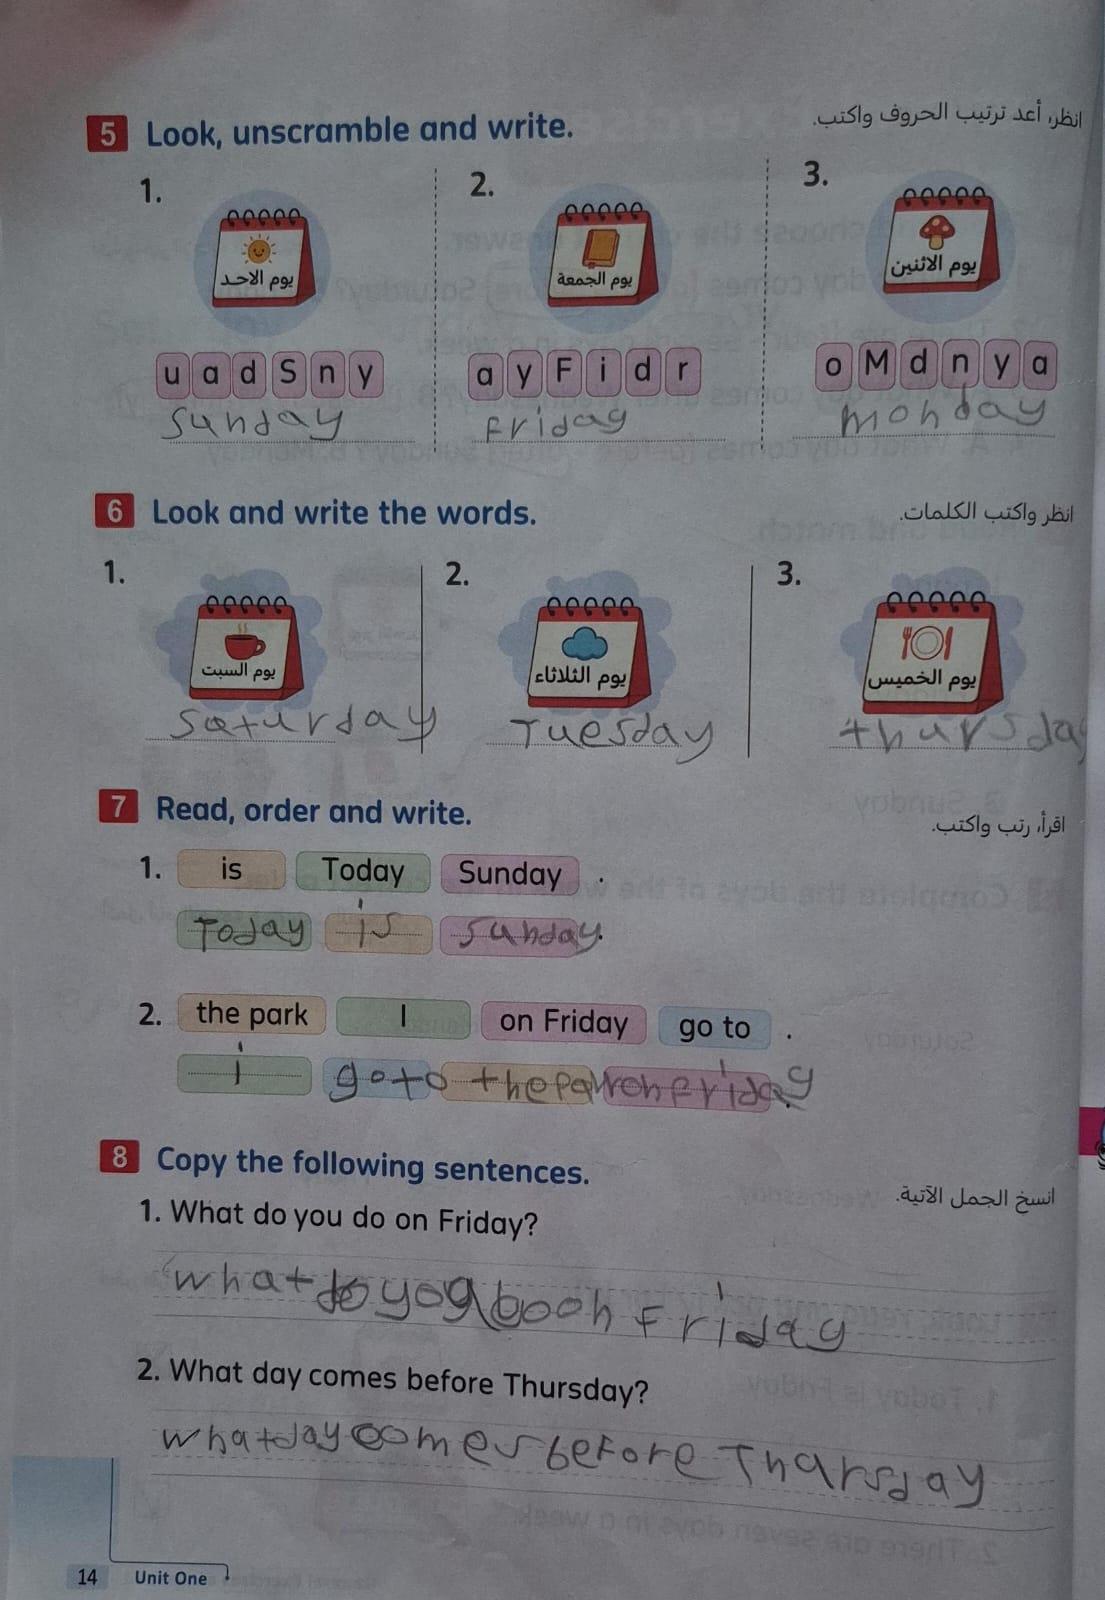 5 Look, unscramble and write. انظر، أعد ترتيب الحروف واكتب.
1. 2. 3.
يوم الاحد يوم الجمعة يوم الاثنين
u a d S n y a y F i d r o M d n y a
Sunday Friday monday
6 Look and write the words. انظر واكتب الكلمات.
1. 2. 3.
يوم السبت يوم الثلاثاء يوم الخميس
Saturday Tuesday thursday
7 Read, order and write. اقرأ، رتب واكتب.
1. is Today Sunday .
Today is Sunday.
2. the park I on Friday go to .
i go to the park on Friday.
8 Copy the following sentences. انسخ الجمل الآتية.
1. What do you do on Friday?
what do you do on Friday
2. What day comes before Thursday?
what day comes before Tharsday
14 Unit One